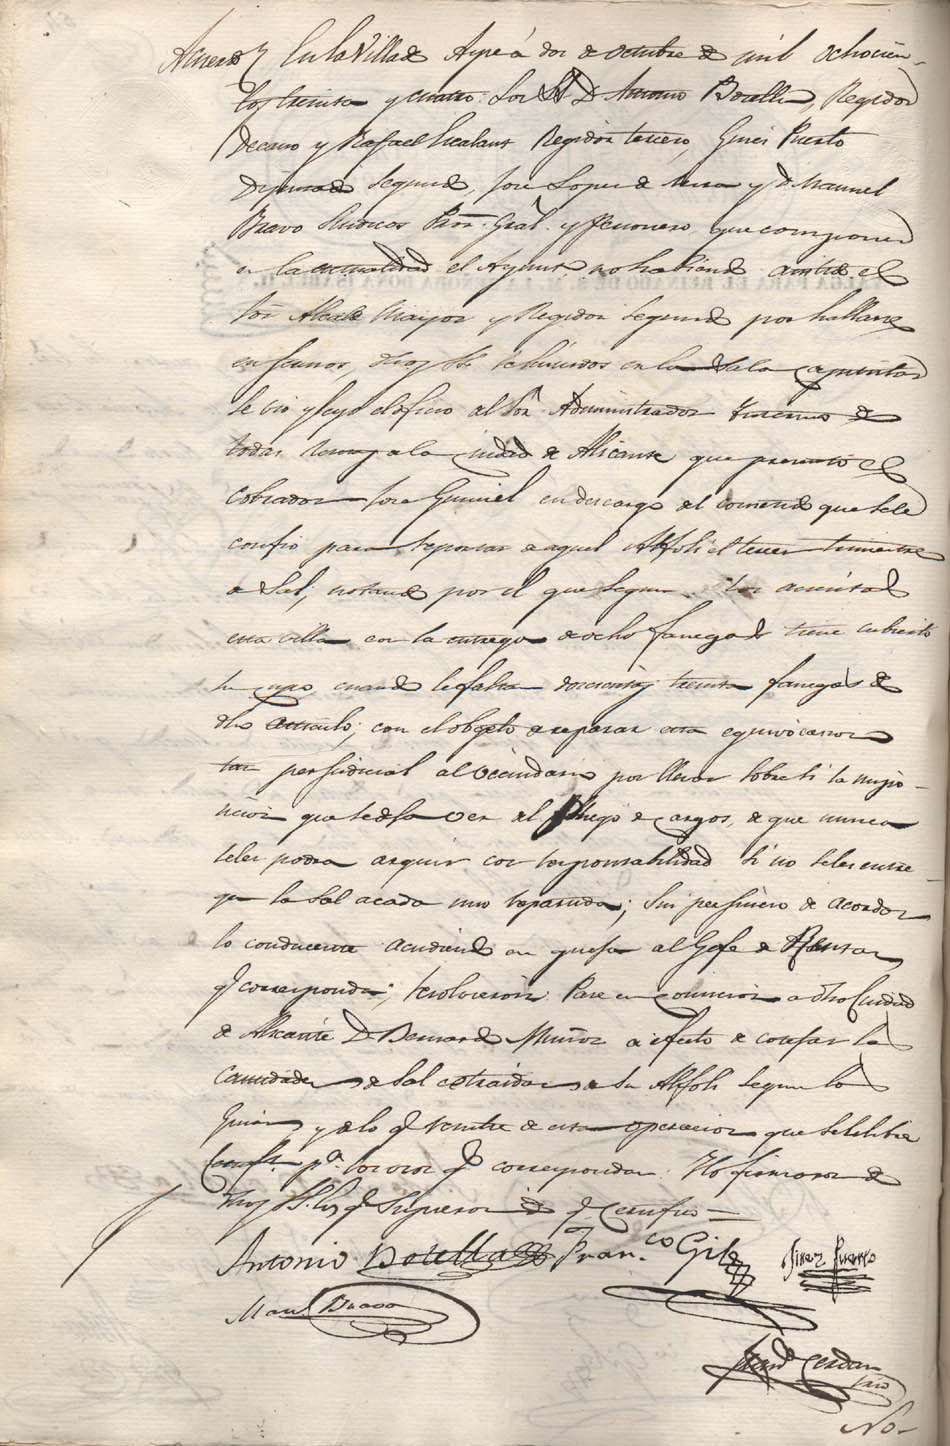 Acuerdo En la Villa de Aspe á dos de octubre de mil ochocien-
tos treinta y cuatro: Los SS. D. Antonio Botella, Regidor
Decano y Rafael Regidor tercero, Gines Puerto
Diputado segundo, Jose Lopez de y D. Manuel
Bravo Sindicos Pror. Gral. y Personero, que componen
en la actualidad el Aynto. no habiendo el
Sor. Alcalde Mayor y Regidor segundo por hallarse
enfermos, dhos SS. reunidos en la Sala Capitular
se vio y leyo el oficio del Sor. Administrador de
todas rentas de la Ciudad de Alicante que presentó el
cobrador Jose Gumiel en descargo del que se le
confio para reportar de aquel Alfoli el tercer trimestre
de Sal, notando por el que segun
esta villa con la entrega de ocho fanegas tiene cubierto
su cupo, cuando le faltan doscientas treinta fanegas de
dho articulo; con el objeto de reparar esta equivocacion
tan perjudicial al vecindario por llevar sobre si la
que se deja ver del pliego de cargos, de que nunca
se les podra arguir con responsabilidad si no se les entre-
ga la Sal a cada uno repartida; Sin perjuicio de acordar
lo conducente acudiendo en queja al Gefe de Rentas
q. corresponda; resolvieron: Pase en comision a dha Ciudad
de Alicante D. Bernardo Muñoz a efecto de cotejar las
cantidades de Sal extraidas de su Alfoli segun las
Guias y de lo q. resulte de esta operacion que se le libre
Certifon. pa. los usos q. correspondan: Yo firmaron de
dhos SS. los q. supieron de q. Certifico=
Antonio Botella Fran.co Gil Ginez Puerto
Manl. Bravo
Fernd.o Cerdan
srio
No-